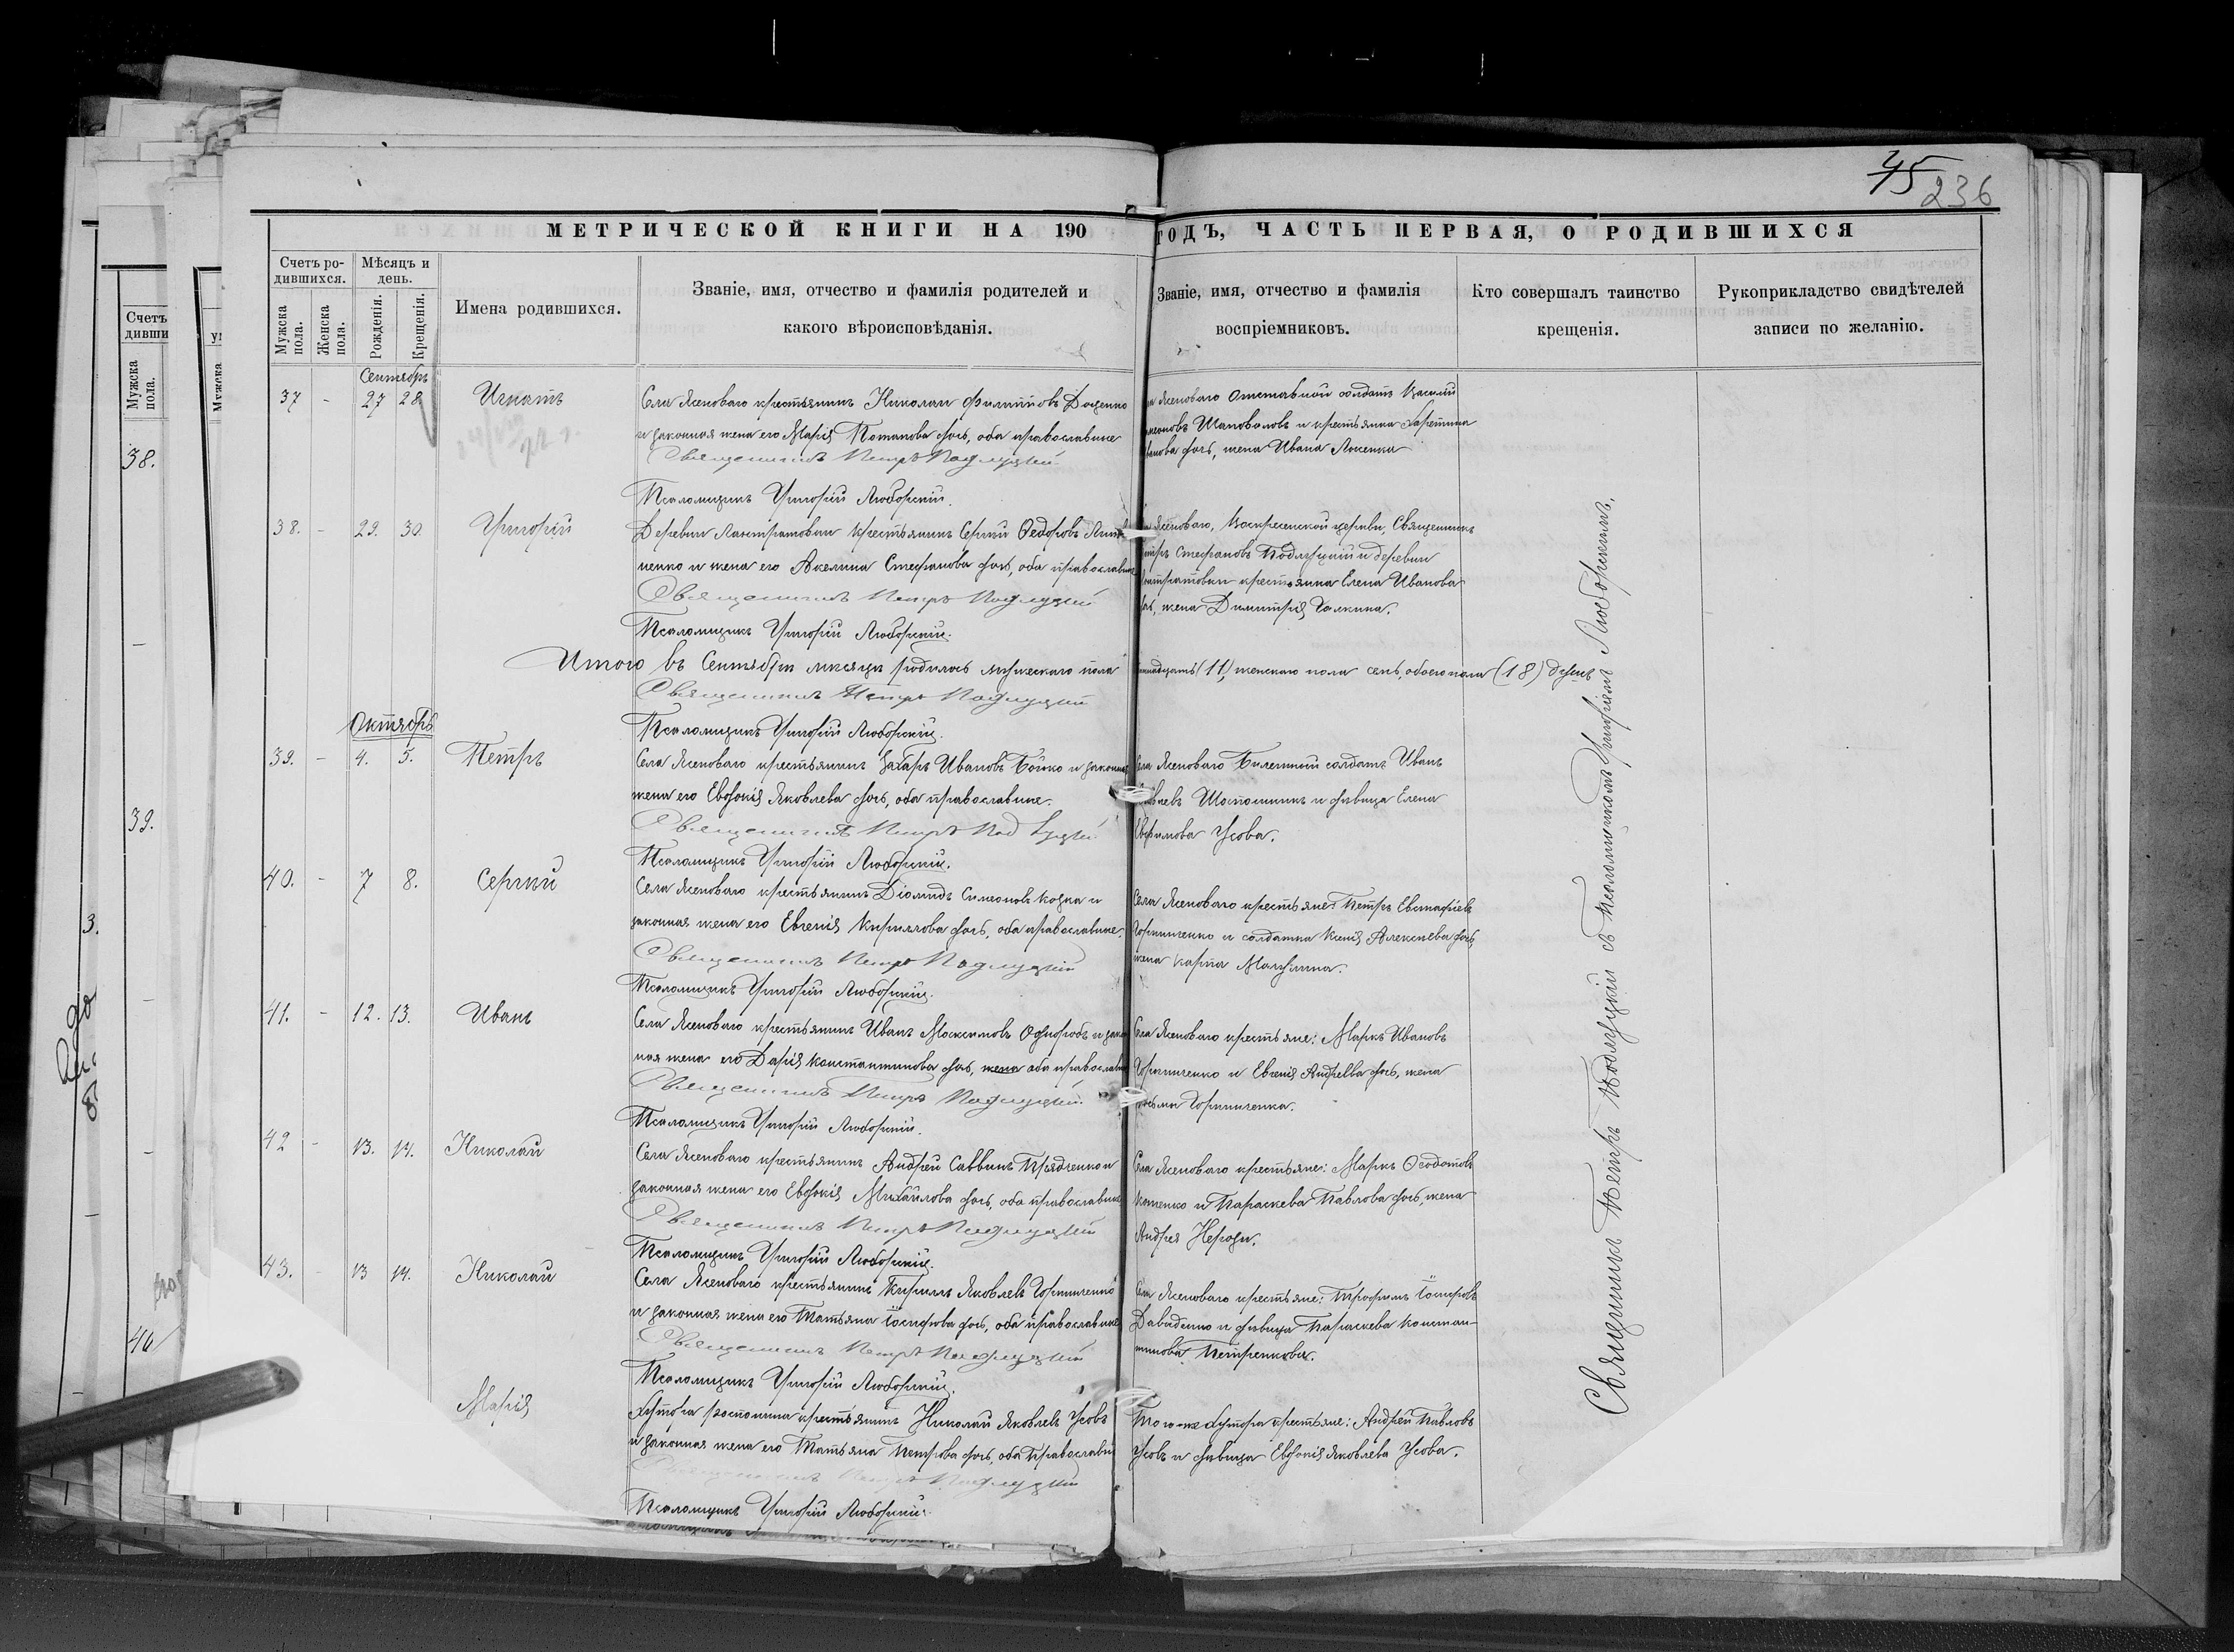 45
236
МЕТРИЧЕСКОЙ КНИГИ НА 190 ГОДЪ, ЧАСТЬ ПЕРВАЯ, О РОДИВШИХСЯ
Счетъ родившихся.
Мѣсяцъ и день.
Имена родившихся.
Званіе, имя, отчество и фамилія родителей и
какого вѣроисповѣданія.
Званіе, имя, отчество и фамилія
воспріемниковъ.
Кто совершалъ таинство
крещенія.
Рукоприкладство свидѣтелей
записи по желанію.
Мужска пола.
Женска пола.
Рожденія.
Крещенія.
Сентябрь
37 - 27 28 Игнатъ
Села Ясеноваго крестьянинъ Николай Филипповъ Доценко
и законная жена его Марія Потапова дочь, оба православные
Священникъ Петръ Подлуцкій
Псаломщикъ Григорій Любарскій.
Ясеноваго отставной солдатъ Василій
Шаповаловъ и крестьянка Харитина
дочь, жена Ивана
38. - 29. 30. Григорій
Деревни крестьянинъ Сергій Ѳедоровъ
ненко и жена его Акелина Стефанова дочь, оба православные
Священникъ Петръ Подлуцкій
Псаломщикъ Григорій Любарскій.
Ясеноваго, Воскресенской церкви, Священникъ
Петръ Стефановъ Подлуцкій и деревни
крестьянка Елена Иванова
дочь, жена Димитрія Галкина.
Итого въ Сентябрѣ мѣсяцѣ родилось мужескаго пола (11), женскаго пола семь, обоего пола (18) душъ
Священникъ Петръ Подлуцкій
Псаломщикъ Григорій Любарскій.
Октябрь
39. - 4. 5. Петръ
Села Ясеноваго крестьянинъ Захаръ Ивановъ Бойко и законная
жена его Евдокія Яковлева дочь, оба православные.
Священникъ Петръ Подлуцкій
Псаломщикъ Григорій Любарскій.
Села Ясеноваго Билетный солдатъ Иванъ
и дѣвица Елена
Усова.
40. - 7 8. Сергій
Села Ясеноваго крестьянинъ Діомидъ Симеоновъ Козка и
законная жена его Евгенія Кириллова дочь, оба православные.
Священникъ Петръ Подлуцкій
Псаломщикъ Григорій Любарскій.
Села Ясеноваго крестьяне: Петръ Евстафіевъ
Горпиченко и солдатка Ксенія Алексѣева дочь,
жена Карпа
41. - 12. 13. Иванъ
Села Ясеноваго крестьянинъ Иванъ Максимовъ и закон
ная жена его Дарія Константинова дочь, жена оба православные
Священникъ Петръ Подлуцкій
Псаломщикъ Григорій Любарскій.
Села Ясеноваго крестьяне: Маркъ Ивановъ
Горпиченко и Евгенія Андреева дочь, жена
Горпиченка.
42 - 13. 14. Николай
Села Ясеноваго крестьянинъ Андрей Саввинъ и
законная жена его Евдокія Михайлова дочь, оба православные
Священникъ Петръ Подлуцкій
Псаломщикъ Григорій Любарскій.
Села Ясеноваго крестьяне: Маркъ Ѳеодотовъ
и Параскева Павлова дочь, жена
Андрея
43. - 13 14. Николай
Села Ясеноваго крестьянинъ Кириллъ Яковлевъ Горпиченко
и законная жена его Татьяна Іосифова дочь, оба православные
Священникъ Петръ Подлуцкій
Псаломщикъ Григорій Любарскій.
Села Ясеноваго крестьяне: Трофимъ Іосифовъ
Давиденко и дѣвица Параскева Констан-
тинова Петренкова.
Марія
Хутора крестьянинъ Николай Яковлевъ Усовъ
и законная жена его Татьяна Петрова дочь, оба Православные
Священникъ Петръ Подлуцкій
Псаломщикъ Григорій Любарскій.
Того-же хутора крестьяне: Андрей Павловъ
Усовъ и дѣвица Евдокія Яковлева Усова.
Священникъ Петръ Подлуцкій съ Псаломщикомъ Григоріемъ Любарскимъ.
Счетъ
дивши
Мужска пола.
38.
39.
40
3.
Мужска